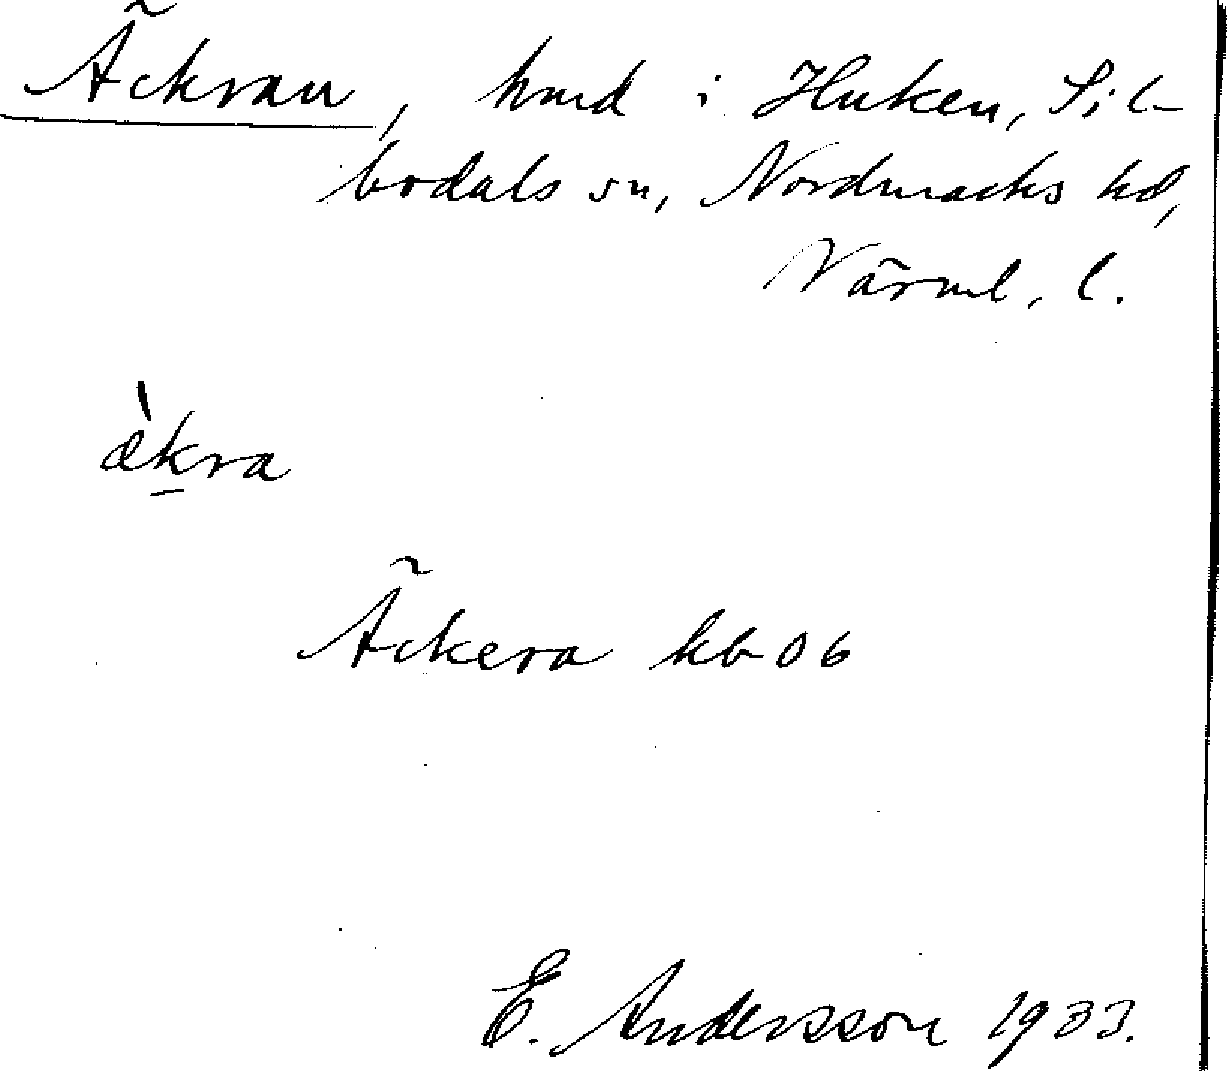 Äckran, hmd i Huken, Sil-
bodals sn, Nordmarks hd,
Värml. l.
æ̀kra
Äckera kb 06
E. Andersson 1933.